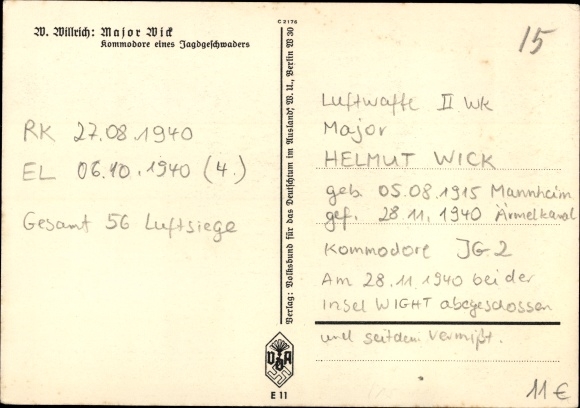 W. Willrich: Major Wick
Kommodore eines Jagdgeschwaders
C 2176
15
RK 27.08.1940
EL 06.10.1940 (4.)
Gesamt 56 Luftsiege
Verlag: Volksbund für das Deutschtum im Ausland, W. U., Berlin W 30
Luftwaffe II WK
Major
HELMUT WICK
geb. 05.08.1915 Mannheim
gef. 28.11.1940 Ärmelkanal
Kommodore JG 2
Am 28.11.1940 bei der
Insel WIGHT abgeschossen
und seitdem vermißt.
VDA
E 11
11 €